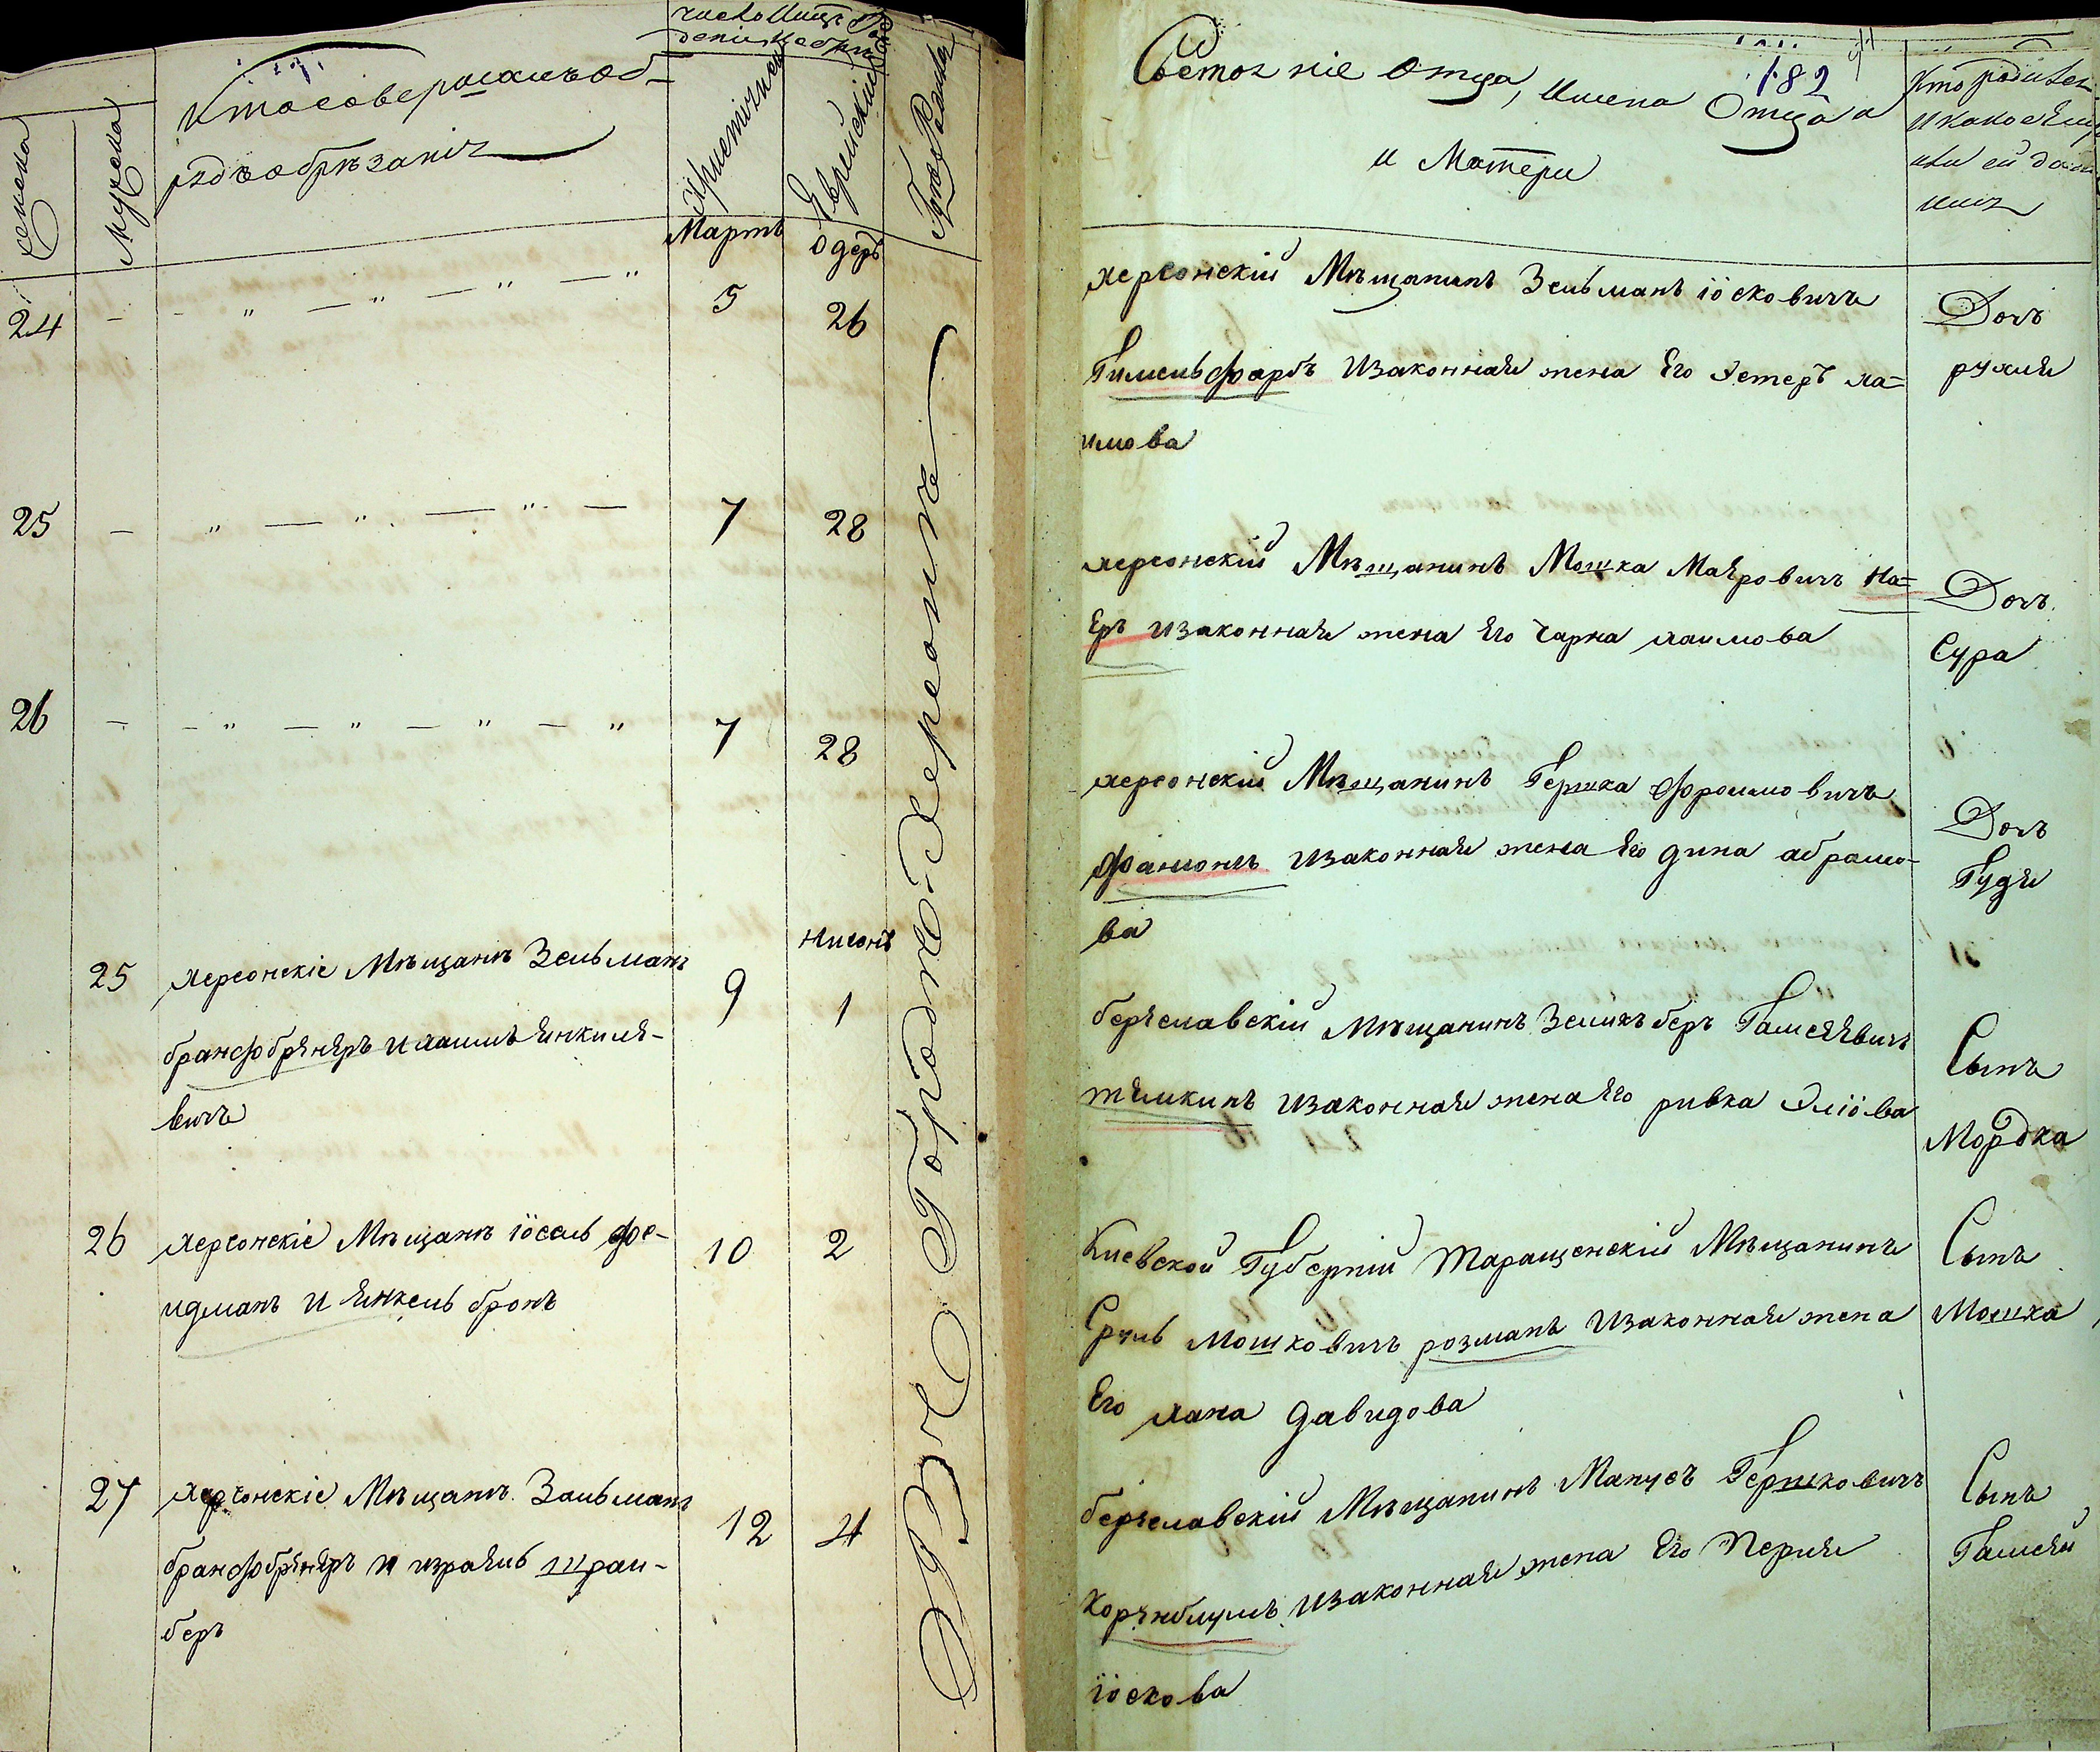 женска
Мужеска
Кто совершилъ об-
рядъ обрѣзанія
Христіянски
Еврейский
Мартъ
Одеръ
24 - - " - " - " - " 5 26
25 - " - " - " - 7 28
26 - - " - " - " - " 7 28
Нисонъ
25 херсонскіе Мѣщанъ Зельманъ 9 1
бранфобрѣнеръ и хаимъ Янкилѣ-
вичъ
26 херсонскіе Мѣщанъ іосель фре- 10 2
идманъ и Янкель бронъ
27 херсонскіе Мѣщанъ Зальманъ 12 4
бранфобрѣнеръ и израиль шраи-
беръ
Въ Городѣ Херсонѣ
182
Состояніе Отца, Имена Отца
и Матери
Кто родился
и какое ему
или ей дано
имя
херсонскій Мѣщанинъ Зельманъ іосковичъ
Гимельфарбъ и законная жена Его Эстеръ ха=
имова
Дочъ
рухля
херсонскій Мѣщанинъ Мошка Маеровичъ На=
Еръ и законная жена Его Чарна хаимова
Дочъ
Сура
херсонскій Мѣщанинъ Гершка Фроимовичъ
Фанюнъ и законная жена Его дина абрамо-
ва
Дочъ
Гудя
бериславскій Мѣщанинъ Зелихъ беръ Гамшеевичъ
тѣмкинъ и законная жена Его ривка Эліова
Сынъ
Мордка
Киевской Губерніи Таращенскій Мѣщанинъ
Сруль Мошковичъ розманъ и законная жена
Его хана давидова
Сынъ
Мошка
бериславскій Мѣщанинъ Манусъ Гершковичъ
Корѣнблумъ и законная жена Его Перля
іоскова
Сынъ
Гамшей